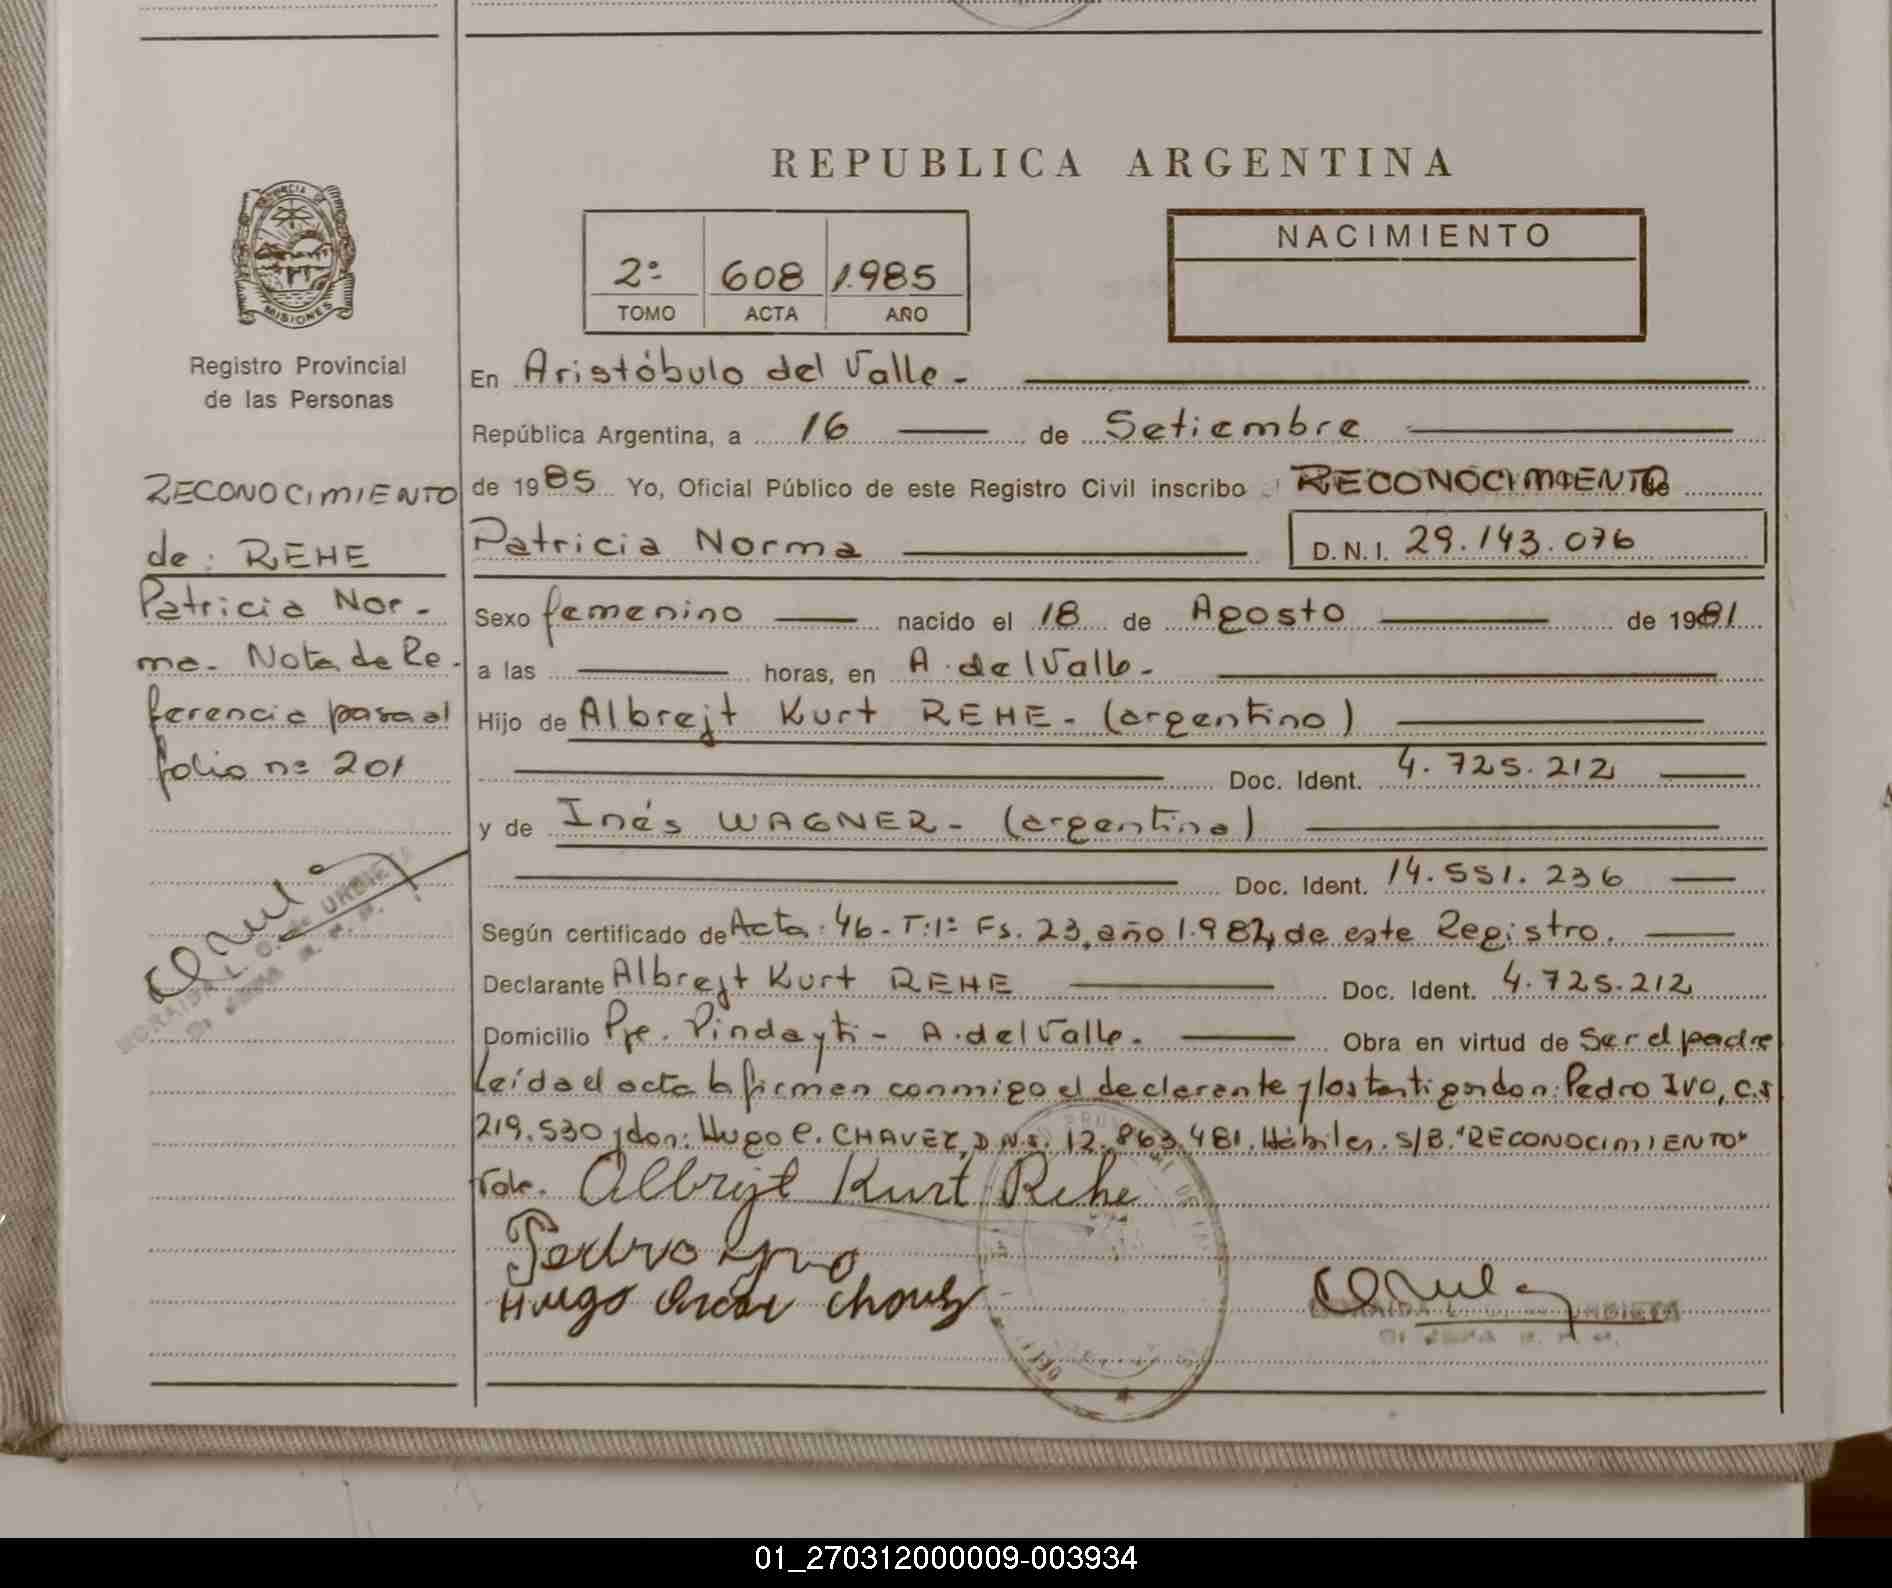 REPUBLICA ARGENTINA
PROVINCIA DE MISIONES
Registro Provincial
de las Personas
2º 608 1.985
TOMO ACTA AÑO
NACIMIENTO
RECONOCIMIENTO
de: REHE
Patricia Nor-
ma. Nota de Re-
ferencia pasa al
folio nº 201
En Aristóbulo del Valle-
República Argentina, a 16 de Setiembre
de 1985 Yo, Oficial Público de este Registro Civil inscribo RECONOCIMIENTO de
Patricia Norma D.N.I. 29.143.076
Sexo femenino nacido el 18 de Agosto de 1981
a las horas, en A. del Valle-
Hijo de Albrejt Kurt REHE- (argentino)
Doc. Ident. 4.725.212
y de Inés WAGNER- (argentina)
Doc. Ident. 14.551.236
Según certificado de Acta: 46- T:1º Fs. 23, año 1.982, de este Registro.
Declarante Albrejt Kurt REHE Doc. Ident. 4.725.212
Domicilio Pje. Pindayti- A. del Valle. Obra en virtud de Ser el padre
Leída el acta la firman conmigo el declarante y los testigos don: Pedro Ivo, C.I
219.530 y don: Hugo O. CHAVEZ, D.N.I. 12.863.481. Hábiles. S/B. "RECONOCIMIENTO"
Vale. Albrejt Kurt Rehe
Pedro Ivo
Hugo Oscar Chavez
01_270312000009-003934